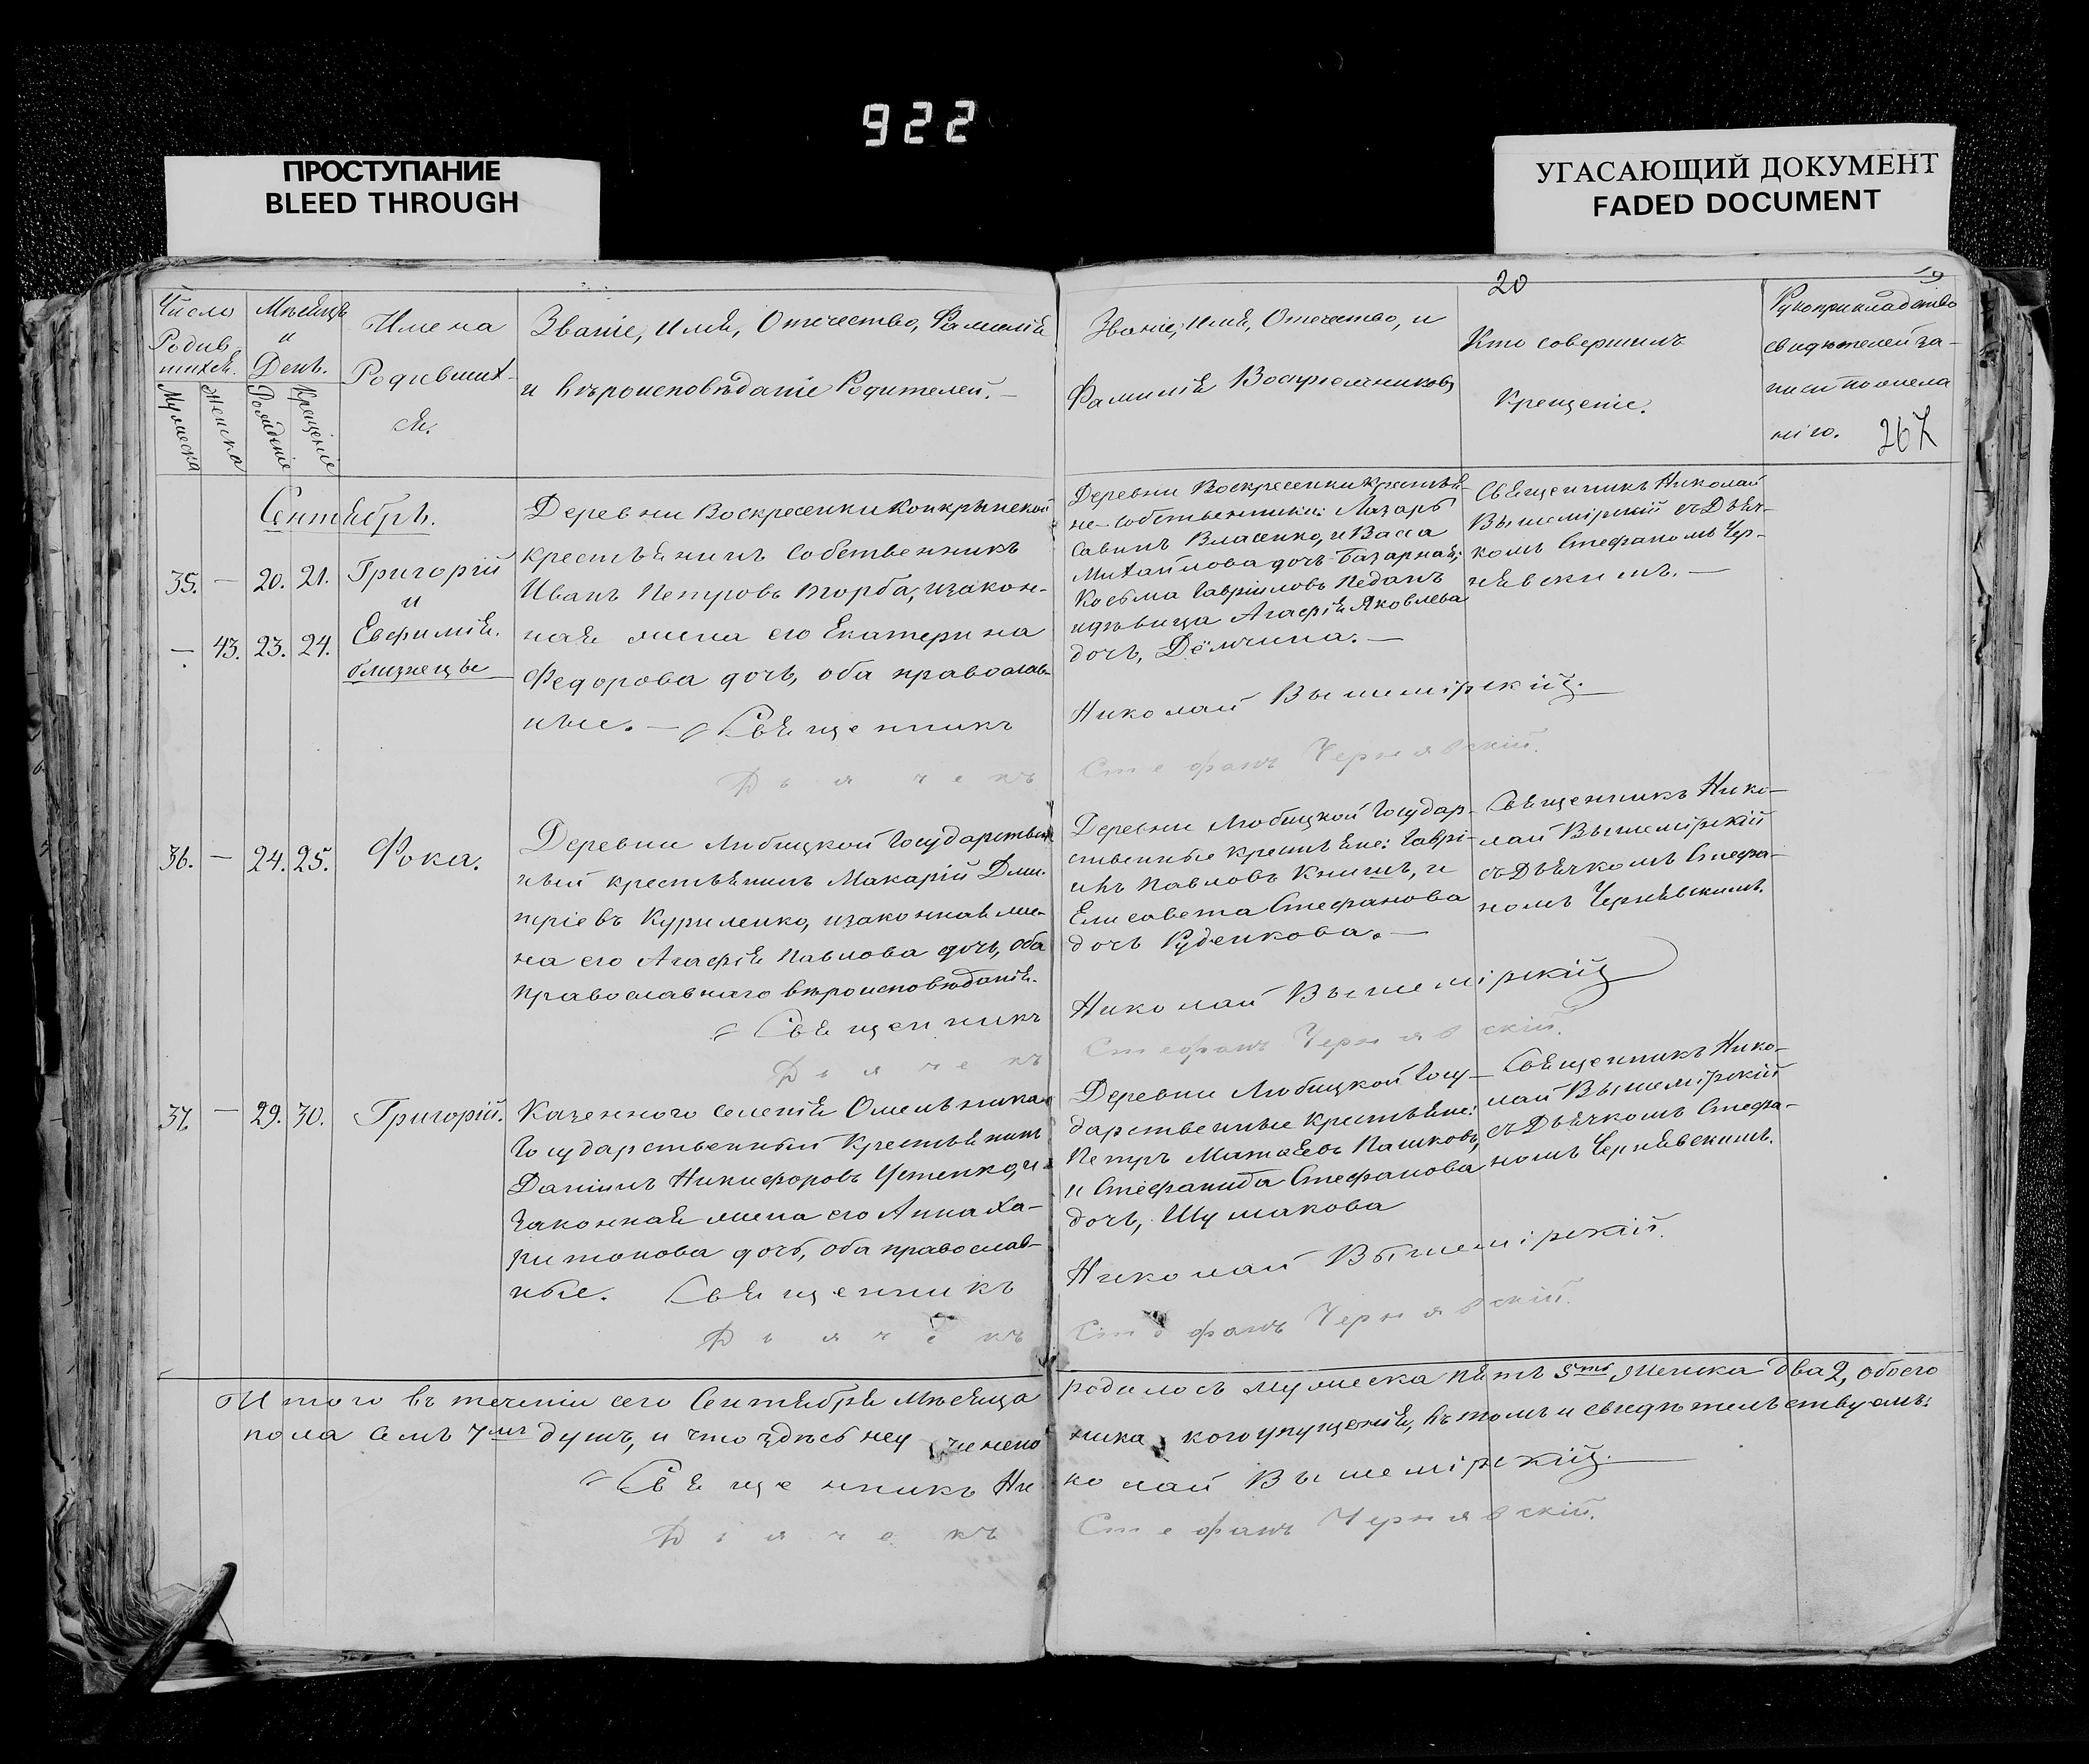 922
ПРОСТУПАНИЕ
BLEED THROUGH
УГАСАЮЩИЙ ДОКУМЕНТ
FADED DOCUMENT
20
19
Число
Родив-
шихся.
Мужеска
Женска
Мѣсяцъ
и
День.
Рожденіе
Крещеніе
Имена
Родивших-
ся.
Званіе, Имя, Отечество, Фамилія
и вѣроисповѣданіе Родителей.
Званіе, Имя, Отечество, и
Фамилія Воспріемниковъ
Кто совершилъ
Крещеніе.
Рукоприкладство
свидѣтелей за-
писи
267
Сентябрь.
35. — 20. 21. Григорій
и
— 43. 23. 24. Евфимія.
близнецы
Деревни Воскресенки
крестьянинъ собственникъ
Иванъ Петровъ Торба, и закон-
ная жена его Екатерина
Федорова дочь, оба православ-
ные. — Священникъ
Дьячекъ
Деревни Воскресенки крестья-
не-собственники: Лазарь
Савинъ Власенко, и Васса
Михайлова дочь Базарная;
Косьма Гавріиловъ Педанъ
и дѣвица Агафія Яковлева
дочь, Дёмчина. —
Николай Вышемірскій.
Стефанъ Чернявскій.
Священникъ Николай
Вышемірскій съ Дьяч-
комъ Стефаномъ Чер-
нявскимъ. —
36. — 24. 25. Фока.
Деревни Любицкой Государствен
ный крестьянинъ Макарій Дми-
тріевъ Куриленко, и законная же-
на его Агафія Павлова дочь, оба
православнаго вѣроисповѣданія.
Священникъ
Дьячекъ
Деревни Любицкой Государ-
ственные крестьяне: Гаврі-
илъ Павловъ Книшъ, и
Елисавета Стефанова
дочь Руденкова. —
Николай Вышемірскій
Стефанъ Чернявскій.
Священникъ Нико-
лай Вышемірскій
съ Дьячкомъ Стефа-
номъ Чернявскимъ.
37. — 29. 30. Григорій.
Казенного селенія Омельника
Государственный Крестьянинъ
Даніилъ Никифоровъ Устенко, и
законная жена его Анна Ха-
ритонова дочь, оба православ-
ные. Священникъ
Дьячекъ
Деревни Любицкой Госу-
дарственные крестьяне:
Петръ Матвѣевъ Пашковъ,
и Стефанида Стефанова
дочь, Шумакова
Николай Вышемірскій.
Стефанъ Чернявскій.
Священникъ Нико-
лай Вышемірскій
съ Дьячкомъ Стефа-
номъ Чернявскимъ.
Итого въ теченіи сего Сентября Мѣсяца родилось мужеска пять 5ть Женска два 2, обоего
пола семь 7мь душъ, и что здѣсь неучинено никакого упущенія, въ томъ и свидѣтельствуемъ:
Священникъ Николай Вышемірскій.
Дьячекъ Стефанъ Чернявскій.